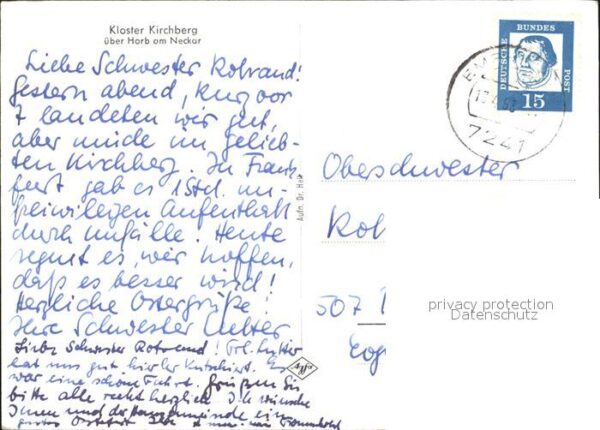 Kloster Kirchberg
über Horb am Neckar
Liebe Schwester Rotraud!
Gestern abend, kurz vor
7 landeten wir gut,
aber müde im gelieb-
ten Kirchberg. In Frank-
furt gab es 1 Std. un-
freiwilligen Aufenthalt
durch Unfälle. Heute
regnet es, wir hoffen,
daß es besser wird!
Herzliche Ostergrüße!
Ihre Schwester
Liebe Schwester Rotraud! Frl.
hat uns gut hierher kutschiert. Es
war eine schöne Fahrt. Grüßen Sie
bitte alle recht herzlich. Ich wünsche
Ihnen und der Hausgemeinde ein
gutes Osterfest Ihre
Aufn. Dr. Hell
DEUTSCHE BUNDESPOST
15
7241
Oberschwester
Rot
507
privacy protection
Datenschutz